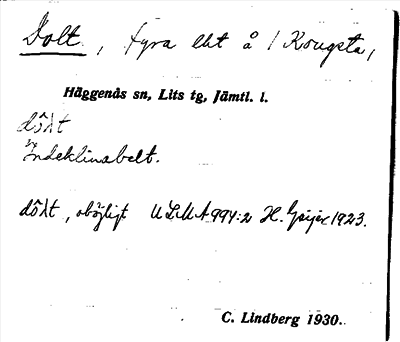 Dolt, fyra lht å i Kougsta,
Häggenås sn, Lits tg, Jämtl. l.
dôλt
Indeklinabelt.
dôλt, oböjligt ULMA 994:2 H. Geijer 1923.
C. Lindberg 1930.